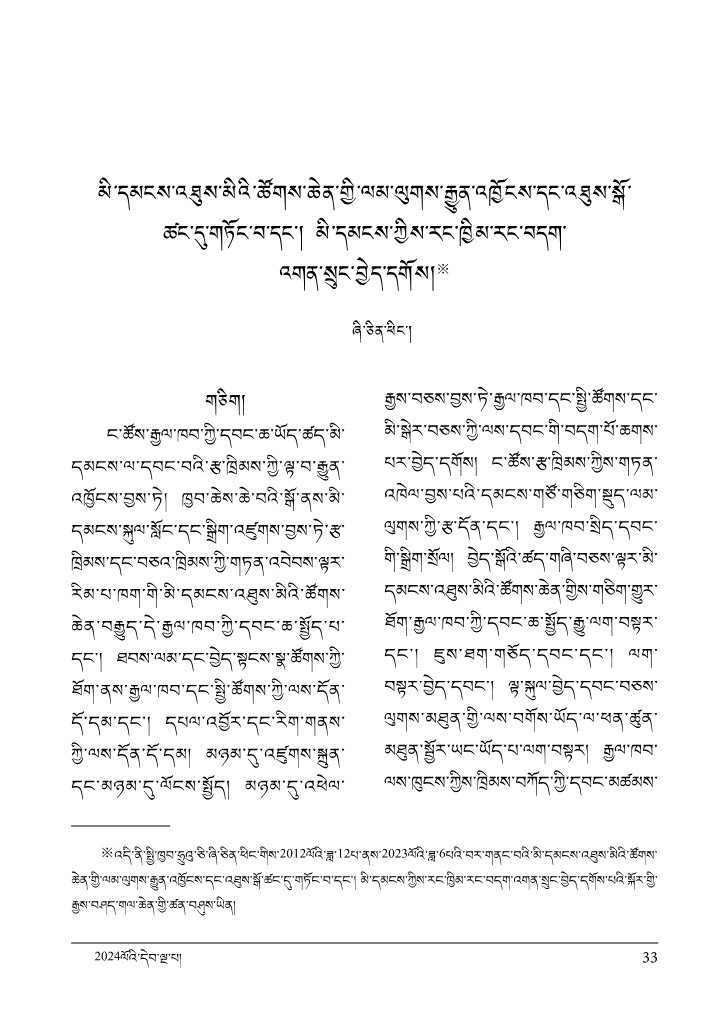 མི་དམངས་འཐུས་མིའི་ཚོགས་ཆེན་གྱི་ལམ་ལུགས་རྒྱུན་འཁྱོངས་དང་འཐུས་སྒོ་
ཚང་དུ་གཏོང་བ་དང་། མི་དམངས་ཀྱིས་རང་ཁྱིམ་རང་བདག་
འགན་སྲུང་བྱེད་དགོས།※
ཞི་ཅིན་ཕིང་།
གཅིག།
ང་ཚོས་རྒྱལ་ཁབ་ཀྱི་དབང་ཆ་ཡོད་ཚད་མི་
དམངས་ལ་དབང་བའི་རྩ་ཁྲིམས་ཀྱི་ལྟ་བ་རྒྱུན་
འཁྱོངས་བྱས་ཏེ། ཁྱབ་ཆེས་ཆེ་བའི་སྒོ་ནས་མི་
དམངས་སྐུལ་སློང་དང་སྒྲིག་འཛུགས་བྱས་ཏེ་རྩ་
ཁྲིམས་དང་བཅའ་ཁྲིམས་ཀྱི་གཏན་འབེབས་ལྟར་
རིམ་པ་ཁག་གི་མི་དམངས་འཐུས་མིའི་ཚོགས་
ཆེན་བརྒྱུད་དེ་རྒྱལ་ཁབ་ཀྱི་དབང་ཆ་སྤྱོད་པ་
དང་། ཐབས་ལམ་དང་བྱེད་སྟངས་སྣ་ཚོགས་ཀྱི་
ཐོག་ནས་རྒྱལ་ཁབ་དང་སྤྱི་ཚོགས་ཀྱི་ལས་དོན་
དོ་དམ་དང་། དཔལ་འབྱོར་དང་རིག་གནས་
ཀྱི་ལས་དོན་དོ་དམ། མཉམ་དུ་འཛུགས་སྐྲུན་
དང་མཉམ་དུ་ལོངས་སྤྱོད། མཉམ་དུ་འཕེལ་
རྒྱས་བཅས་བྱས་ཏེ་རྒྱལ་ཁབ་དང་སྤྱི་ཚོགས་དང་
མི་སྒེར་བཅས་ཀྱི་ལས་དབང་གི་བདག་པོ་ཆགས་
པར་བྱེད་དགོས། ང་ཚོས་རྩ་ཁྲིམས་ཀྱིས་གཏན་
འཁེལ་བྱས་པའི་དམངས་གཙོ་གཅིག་སྡུད་ལམ་
ལུགས་ཀྱི་རྩ་དོན་དང་། རྒྱལ་ཁབ་སྲིད་དབང་
གི་སྒྲིག་སྲོལ། བྱེད་སྒོའི་ཚད་གཞི་བཅས་ལྟར་མི་
དམངས་འཐུས་མིའི་ཚོགས་ཆེན་གྱིས་གཅིག་གྱུར་
ཐོག་རྒྱལ་ཁབ་ཀྱི་དབང་ཆ་སྤྱོད་རྒྱུ་ལག་བསྟར་
དང་། ཇུས་ཐག་གཅོད་དབང་དང་། ལག་
བསྟར་བྱེད་དབང་། ལྟ་སྐུལ་བྱེད་དབང་བཅས་
ལུགས་མཐུན་གྱི་ལས་བགོས་ཡོད་ལ་ཕན་ཚུན་
མཐུན་སྦྱོར་ཡང་ཡོད་པ་ལག་བསྟར། རྒྱལ་ཁབ་
ལས་ཁུངས་ཀྱིས་ཁྲིམས་བཀོད་ཀྱི་དབང་མཚམས་
※འདི་ནི་སྤྱི་ཁྱབ་ཧྲུའུ་ཅི་ཞི་ཅིན་ཕིང་གིས་2012ལོའི་ཟླ་12པ་ནས་2023ལོའི་ཟླ་6པའི་བར་གནང་བའི་མི་དམངས་འཐུས་མིའི་ཚོགས་
ཆེན་གྱི་ལམ་ལུགས་རྒྱུན་འཁྱོངས་དང་འཐུས་སྒོ་ཚང་དུ་གཏོང་བ་དང་། མི་དམངས་ཀྱིས་རང་ཁྱིམ་རང་བདག་འགན་སྲུང་བྱེད་དགོས་པའི་སྐོར་གྱི་
རྒྱས་བཤད་གལ་ཆེན་གྱི་ཚན་བཤུས་ཡིན།
2024ལོའི་དེབ་ལྔ་པ། 33